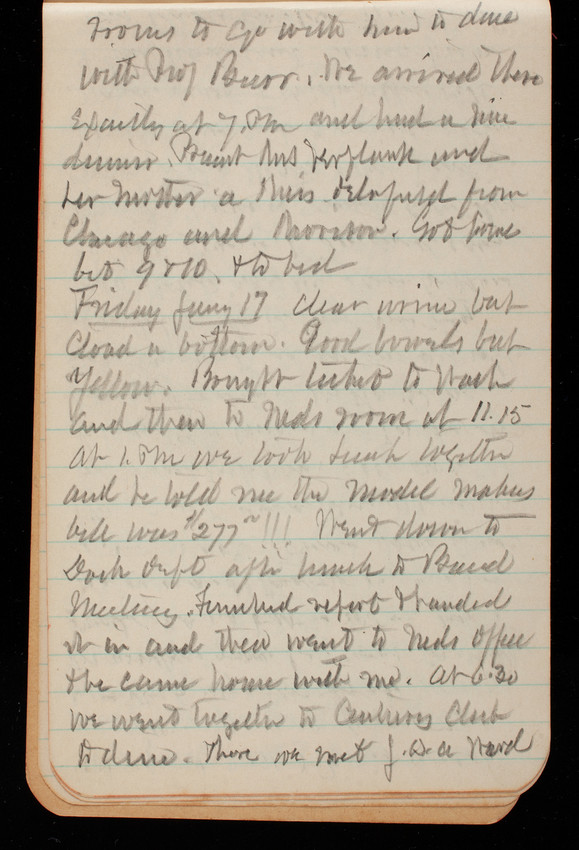 rooms to go with him to dine
with Prof Burr. We arrived there
exactly at 7. PM and had a nice
dinner. Present Mrs Verplank and
her mother a Miss from
Chicago and Morison. Got home
bet 9 & 10. & to bed
Friday Jany 17 clear urine but
cloud a bottom. Good bowels but
Yellow. Bought ticket to Wash
and then to Neds room at 11.15
at 1. PM we took lunch together
and he told me the model makers
bill was $277 !!! Went down to
Dock Dept after lunch to Board
Meeting. Finished report & handed
it in and then went to Neds office
& he came home with me. At 6.30
we went together to Century Club
to dine. There we met J.Q.A Ward